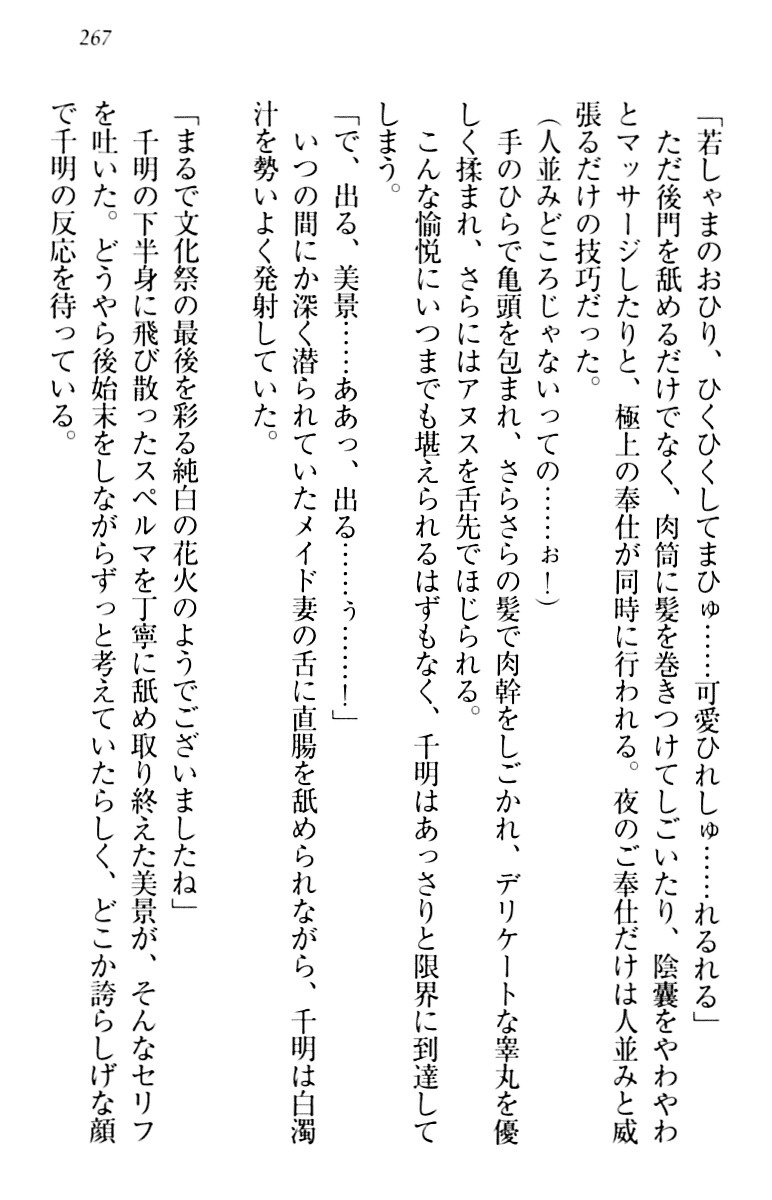 267
「若しゃまのおひり、ひくひくしてまひゅ……可愛ひれしゅ……れるれる」
ただ後門を舐めるだけでなく、肉筒に髪を巻きつけてしごいたり、陰嚢をやわやわ
とマッサージしたりと、極上の奉仕が同時に行われる。夜のご奉仕だけは人並みと威
張るだけの技巧だった。
（人並みどころじゃないっての……ぉ！）
手のひらで亀頭を包まれ、さらさらの髪で肉幹をしごかれ、デリケートな睾丸を優
しく揉まれ、さらにはアヌスを舌先でほじられる。
こんな愉悦にいつまでも堪えられるはずもなく、千明はあっさりと限界に到達して
しまう。
「で、出る、美景……ああっ、出る……ぅ……！」
いつの間にか深く潜られていたメイド妻の舌に直腸を舐められながら、千明は白濁
汁を勢いよく発射していた。
「まるで文化祭の最後を彩る純白の花火のようでございましたね」
千明の下半身に飛び散ったスペルマを丁寧に舐め取り終えた美景が、そんなセリフ
を吐いた。どうやら後始末をしながらずっと考えていたらしく、どこか誇らしげな顔
で千明の反応を待っている。